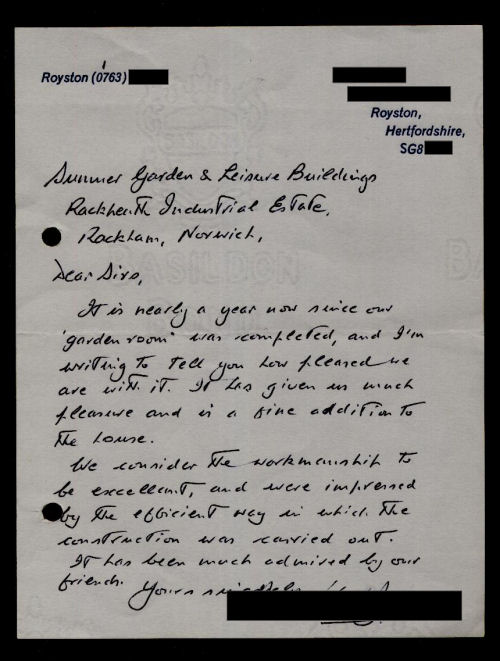 Royston (0763)
Royston,
Hertfordshire,
SG8
Summer Garden & Leisure Buildings
Rackheath Industrial Estate,
Rackham, Norwich,
BASILDON
Dear Sirs,
It is nearly a year now since our
'garden room' was completed, and I'm
writing to tell you how pleased we
are with it. It has given us much
pleasure and is a fine addition to
the house.
We consider the workmanship to
be excellent, and were impressed
by the efficient way in which the
construction was carried out.
It has been much admired by our
friends.
Yours sincerely